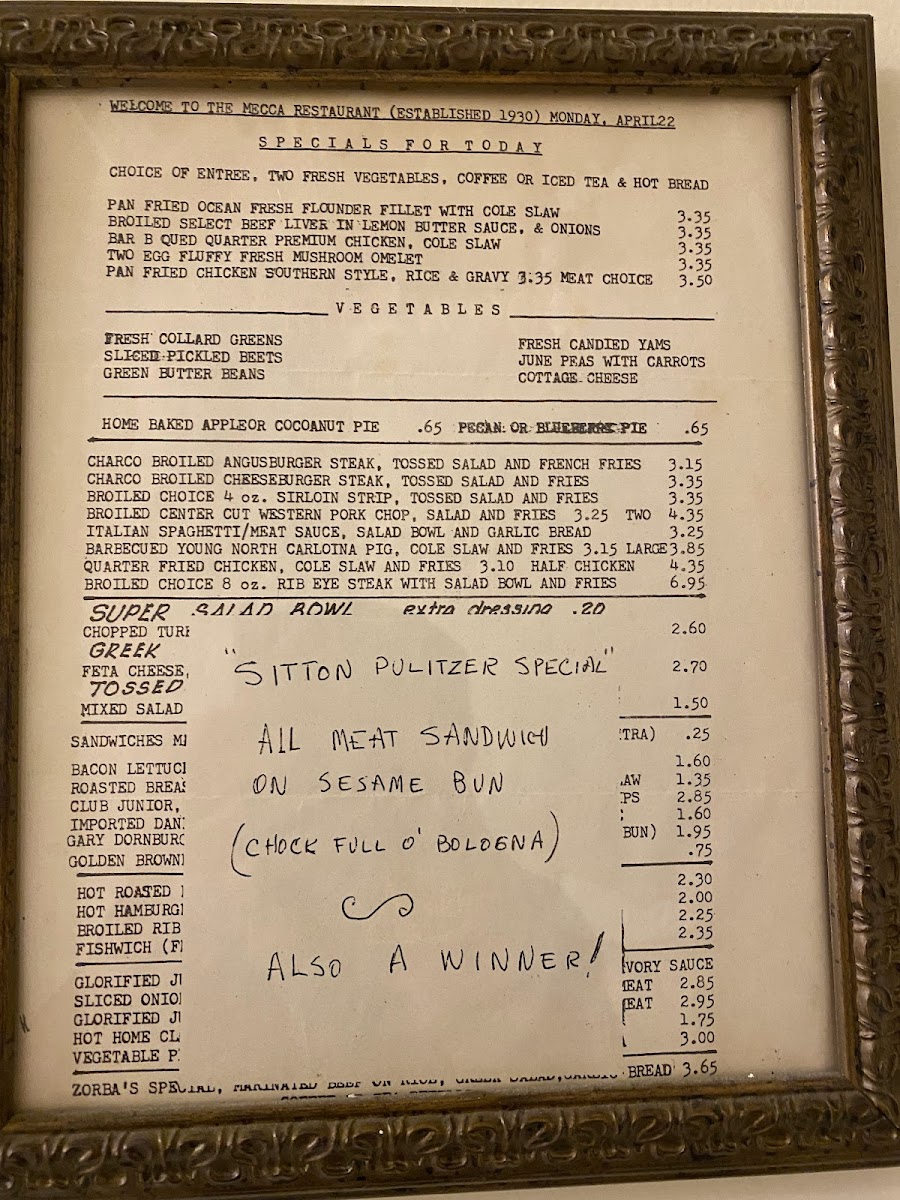 WELCOME TO THE MECCA RESTAURANT (ESTABLISHED 1930) MONDAY, APRIL22
SPECIALS FOR TODAY
CHOICE OF ENTREE, TWO FRESH VEGETABLES, COFFEE OR ICED TEA & HOT BREAD
PAN FRIED OCEAN FRESH FLOUNDER FILLET WITH COLE SLAW 3.35
BROILED SELECT BEEF LIVER IN LEMON BUTTER SAUCE, & ONIONS 3.35
BAR B QUED QUARTER PREMIUM CHICKEN, COLE SLAW 3.35
TWO EGG FLUFFY FRESH MUSHROOM OMELET 3.35
PAN FRIED CHICKEN SOUTHERN STYLE, RICE & GRAVY 3.35 MEAT CHOICE 3.50
VEGETABLES
FRESH COLLARD GREENS FRESH CANDIED YAMS
SLICED PICKLED BEETS JUNE PEAS WITH CARROTS
GREEN BUTTER BEANS COTTAGE CHEESE
HOME BAKED APPLEOR COCOANUT PIE .65 PECAN OR BLUEBERRY PIE .65
CHARCO BROILED ANGUSBURGER STEAK, TOSSED SALAD AND FRENCH FRIES 3.15
CHARCO BROILED CHEESEBURGER STEAK, TOSSED SALAD AND FRIES 3.35
BROILED CHOICE 4 oz. SIRLOIN STRIP, TOSSED SALAD AND FRIES 3.35
BROILED CENTER CUT WESTERN PORK CHOP, SALAD AND FRIES 3.25 TWO 4.35
ITALIAN SPAGHETTI/MEAT SAUCE, SALAD BOWL AND GARLIC BREAD 3.25
BARBECUED YOUNG NORTH CARLOINA PIG, COLE SLAW AND FRIES 3.15 LARGE 3.85
QUARTER FRIED CHICKEN, COLE SLAW AND FRIES 3.10 HALF CHICKEN 4.35
BROILED CHOICE 8 oz. RIB EYE STEAK WITH SALAD BOWL AND FRIES 6.95
SUPER SALAD BOWL extra dressing .20
CHOPPED TUR 2.60
GREEK
FETA CHEESE, 2.70
TOSSED
MIXED SALAD 1.50
"SITTON PULITZER SPECIAL"
ALL MEAT SANDWICH
ON SESAME BUN
(CHOCK FULL O' BOLOGNA)
ALSO A WINNER!
SANDWICHES M TRA) .25
BACON LETTUC 1.60
ROASTED BREA AW 1.35
CLUB JUNIOR, PS 2.85
IMPORTED DAN 1.60
GARY DORNBUR BUN) 1.95
GOLDEN BROWN .75
HOT ROASTED 2.30
HOT HAMBURG 2.00
BROILED RIB 2.25
FISHWICH (F 2.35
VORY SAUCE
GLORIFIED J EAT 2.85
SLICED ONIO EAT 2.95
GLORIFIED J 1.75
HOT HOME CL 3.00
VEGETABLE P
ZORBA'S SPECIAL, MARINATED BEEF ON RICE, GREEK SALAD, GARLIC BREAD 3.65